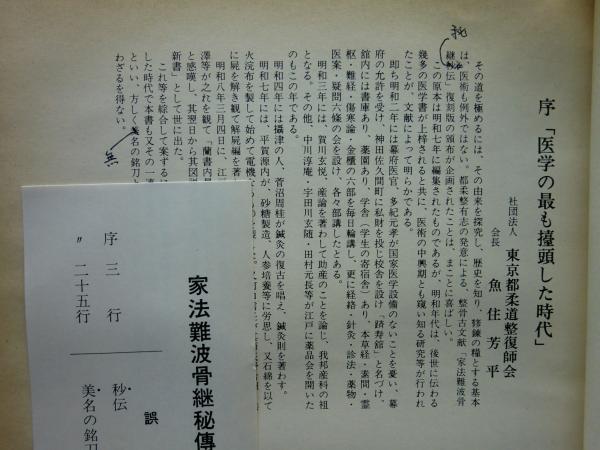 序「医学の最も擡頭した時代」
社団法人 東京都柔道整復師会
会長 魚住芳平
その道を極めるには、その由来を探究し、歴史を知り、修錬の糧とする基本
は、医術も例外ではない。都柔整有志の発意による、整骨古文献「家法難波骨
継秘伝」復刻版の頒布が企画されたことは、まことに喜ばしい。
秘
この原本は明和七年に編集されたものであるが、明和年代は、後世に伝わる
幾多の医学書が上梓されると共に、医術の中興期とも窺い知る研究等が行われ
たことが、文献によって明らかである。
即ち明和二年には幕府医官、多紀元孝が国家医学設備のないことを憂い、幕
府の允許を受け、神田佐久間町に私財を投じ校舎を設け「躋寿館」と名づけ、
館内には書庫あり、薬園あり、学舎（学生の寄宿舎）あり、本草経・素問・霊
枢・難経・傷寒論・金匱の六部を毎日輪講し、更に経絡・針灸・診法・薬物・
医案・疑問六條の会を設け、各々部講したとある。
明和三年には、賀川玄悦、産論を著わして助産のことを論じ、我邦産科の祖
となる。その他、中川淳庵、宇田川玄随、田村元長等が江戸に薬品会を開いた
のもこの年である。
明和四年には摂津の人、菅沼周桂が鍼灸の復古を唱え、鍼灸則を著わす。
明和七年には、平賀源内が、砂糖製造、人参培養等に労思し、又石綿を以て
火浣布を製して始めて電機
に屍を解き観て解屍編を著
明和八年三月四日に、江
澤等が之れを観て、蘭書内
と感嘆し、其翌日から其図
新書」として世に出た。
これ等を綜合して案ずるに
した時代で本書も又その一連
といい、方しく美名の銘刀
無
わざるを得ない。
家法難波骨継秘傳
誤
序 三行 秘伝
〃 二十五行 美名の銘刀